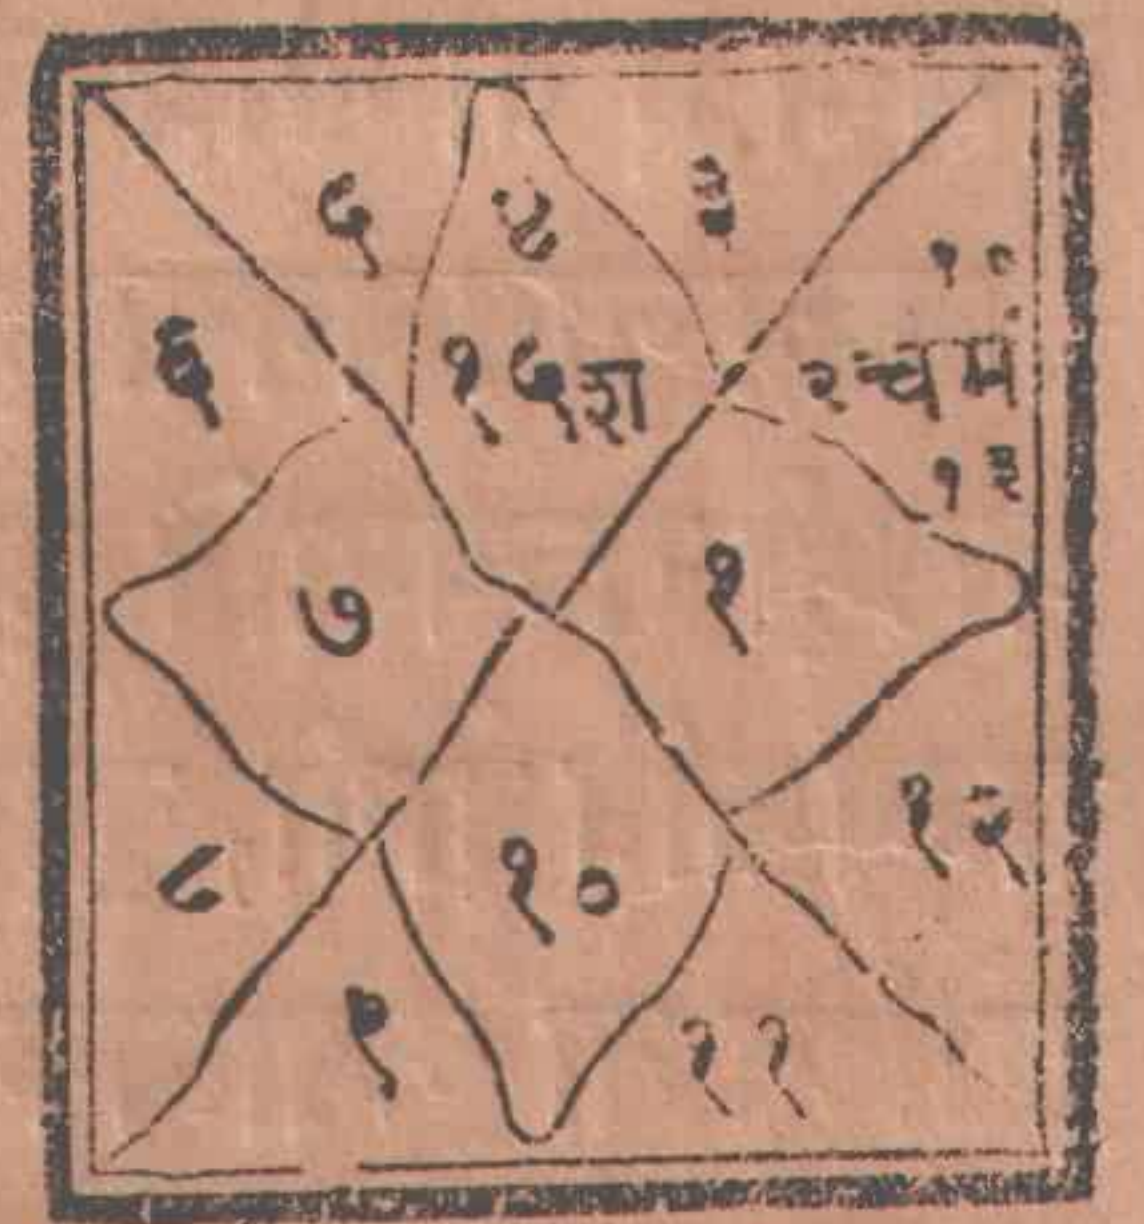 ५
४
३
६
१५श
१०
२चमं
१३
७
१
८
१०
१२
९
११